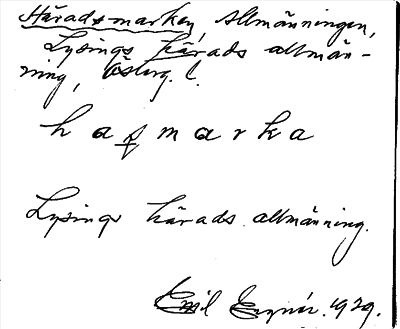 Häradsmarken, Allmänningen,
Lysings härads allmän-
ning, Österg. l.
h a ʂ m a r k a
Lysings härads allmänning.
Emil 1929.